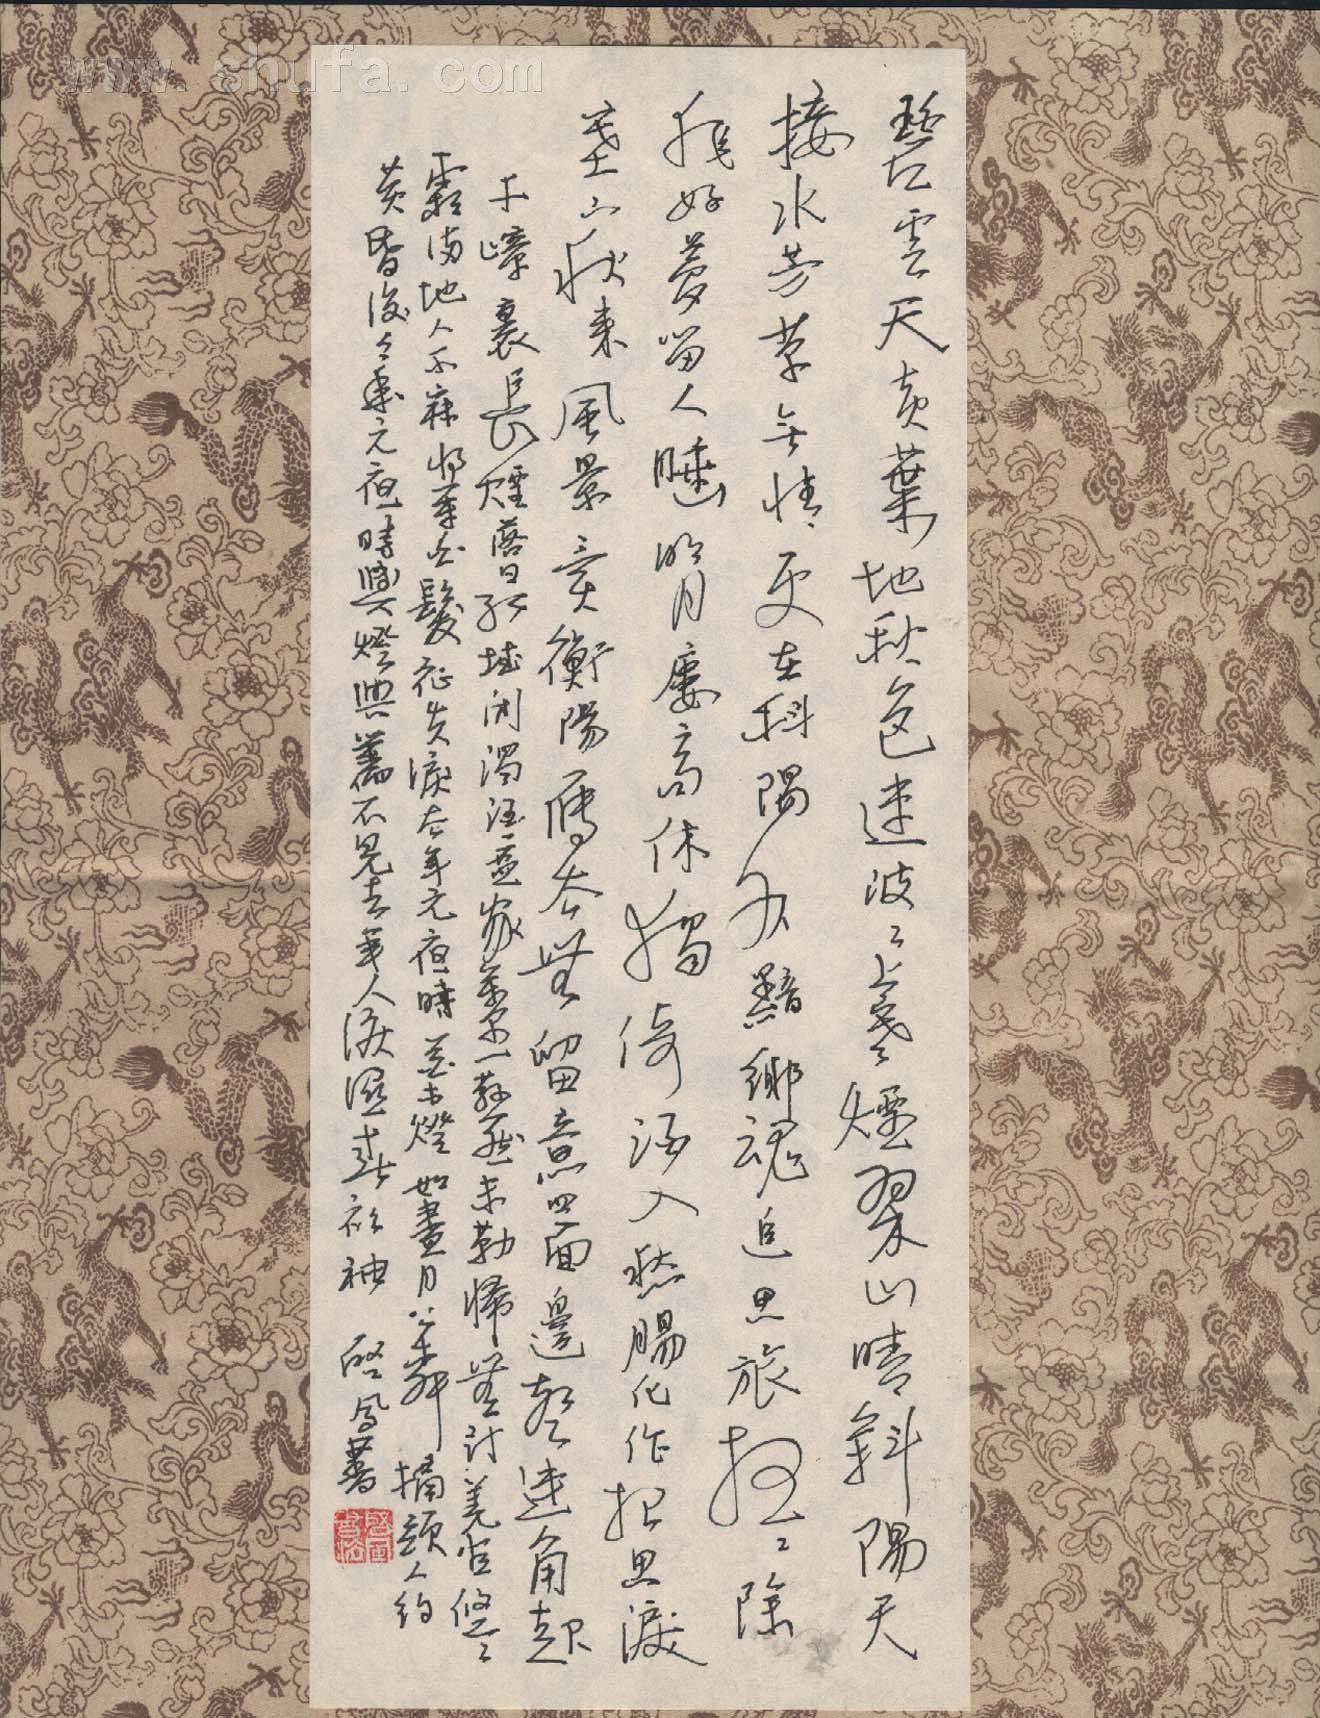 www.shufa.com
碧雲天黃葉地秋色連波波上寒煙翠山映斜陽天
接水芳草無情更在斜陽外黯鄉魂追思旅夜夜除
非好夢留人睡明月樓高休獨倚酒入愁腸化作相思淚
塞下秋來風景異衡陽雁去無留意四面邊聲連角起
千嶂裏長煙落日孤城閉濁酒一盃家萬里燕然未勒歸無計羌管悠悠
霜滿地人不寐將軍白髮征夫淚去年元夜時花市燈如晝月
黃昏後今年元夜時月與燈與舊不見去年人淚濕春衫袖